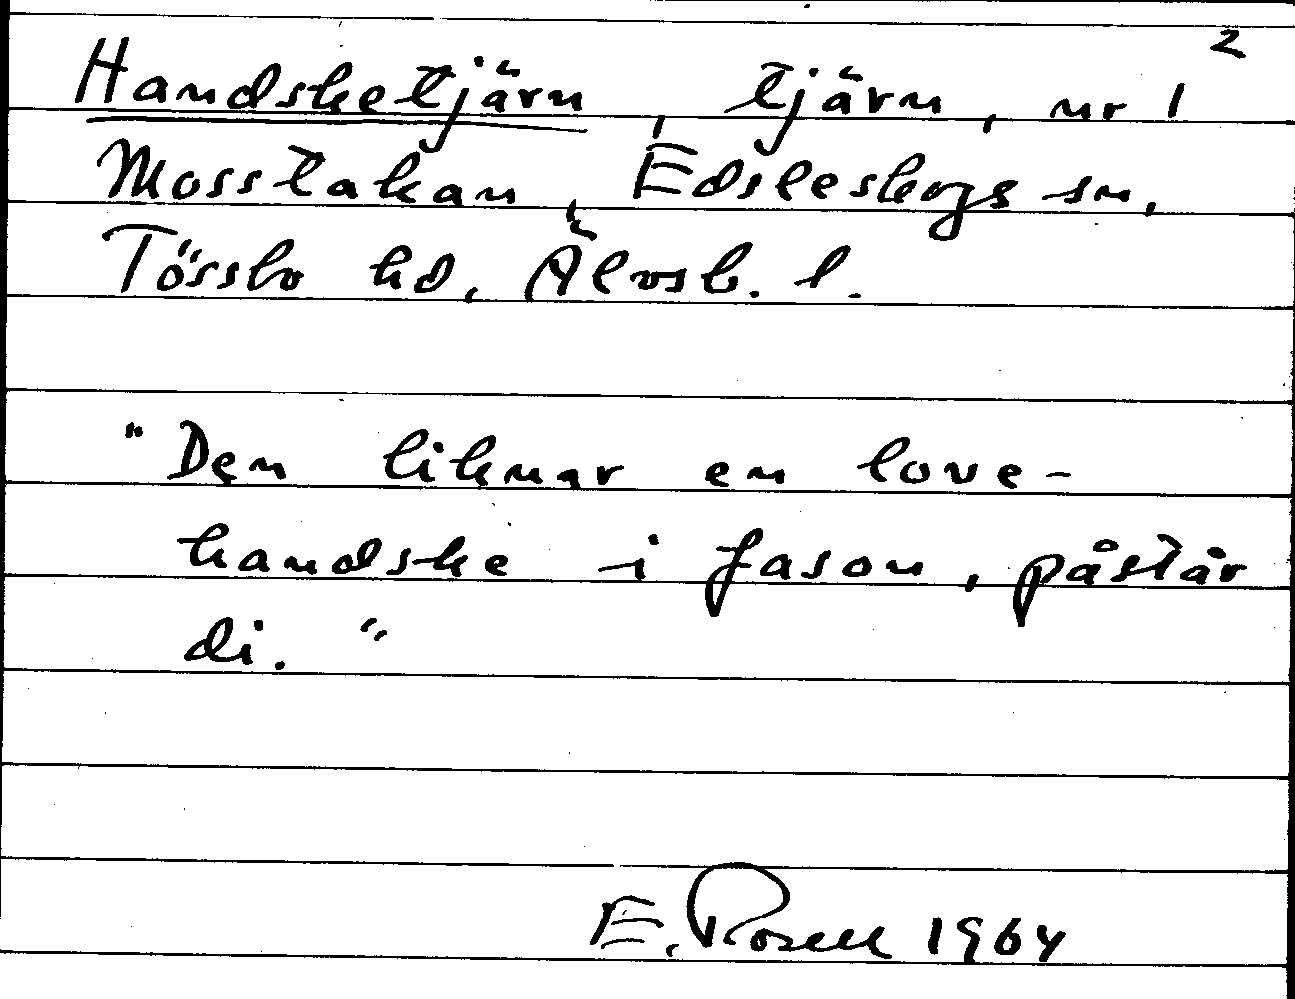 2
Handsketjärn, tjärn, nr 1
Mosstakan, Edsleskogs sn,
Tössbo hd, Älvsb. l.
"Den liknar en love-
handske i fason, påstår
di."
E. Rosell 1964